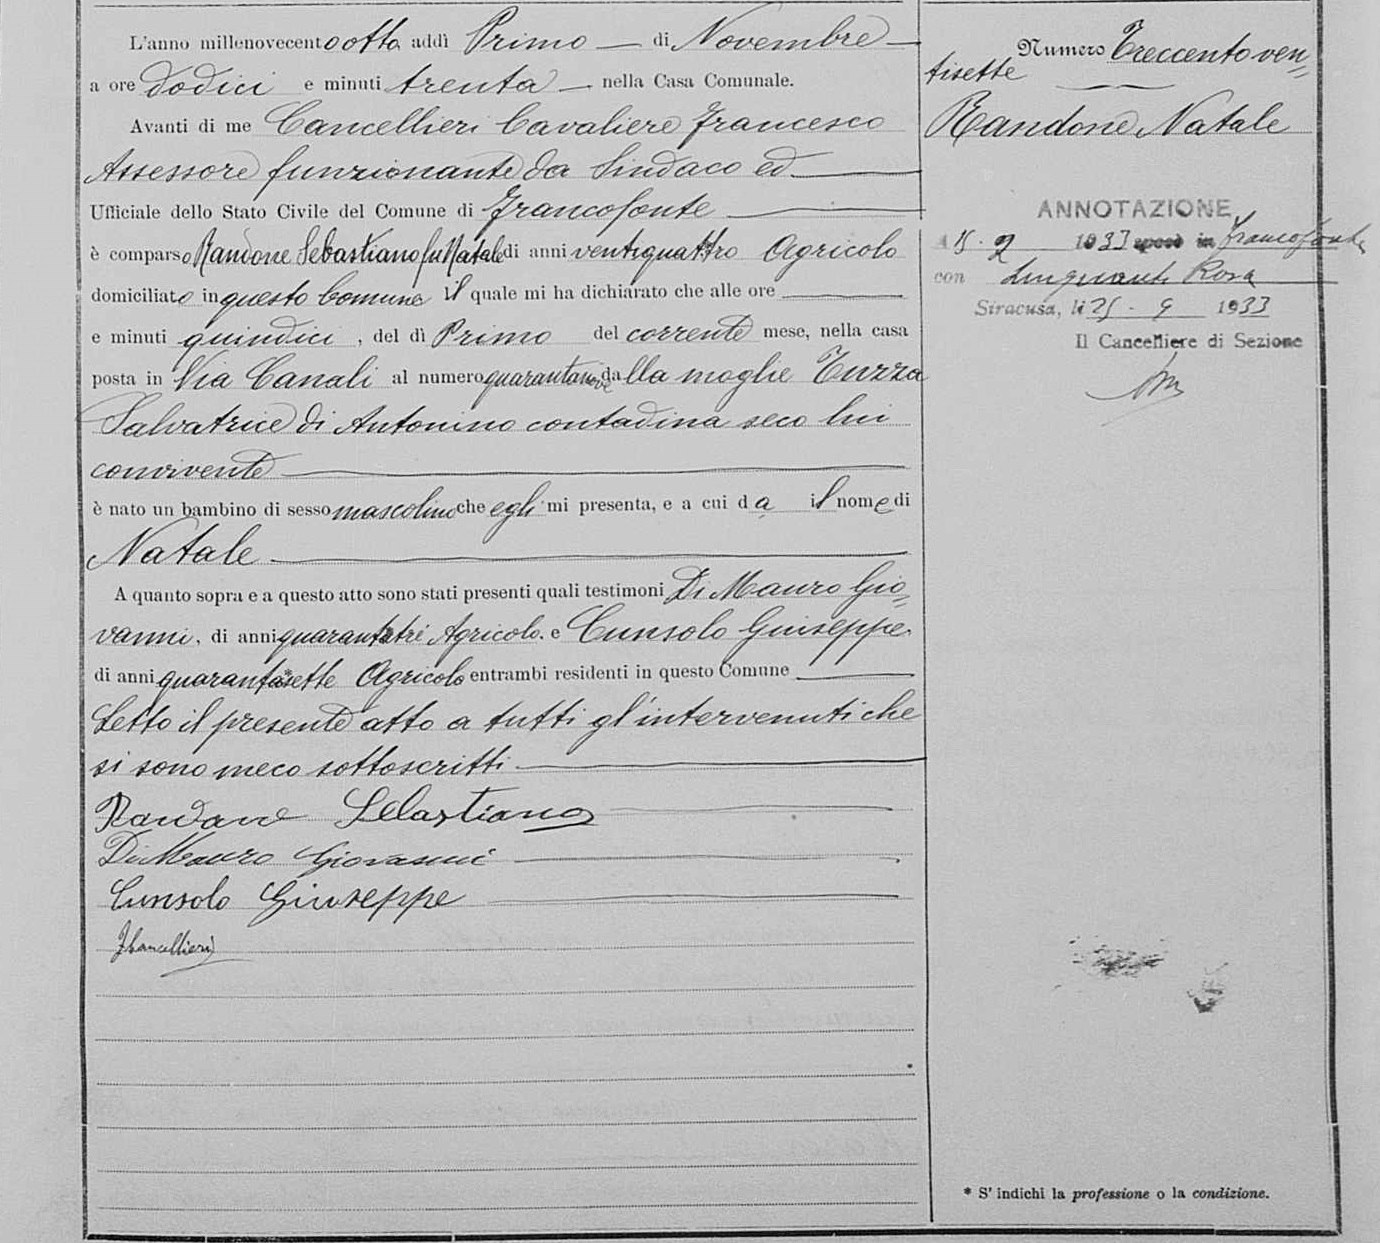 L'anno millenovecentootto, addì Primo — di Novembre —
a ore dodici e minuti trenta — nella Casa Comunale.
Avanti di me Cancellieri Cavaliere Francesco
Assessore funzionante da Sindaco ed
Ufficiale dello Stato Civile del Comune di Francofonte
è comparso Randone Sebastiano fu Natale di anni ventiquattro Agricolo
domiciliato in questo Comune il quale mi ha dichiarato che alle ore
e minuti quindici, del dì Primo del corrente mese, nella casa
posta in Via Canali al numero quarantanove dalla moglie Tuzza
Salvatrice di Antonino contadina seco lui
convivente
è nato un bambino di sesso mascolino che egli mi presenta, e a cui da il nome di
Natale
A quanto sopra e a questo atto sono stati presenti quali testimoni Di Mauro Gio=
vanni, di anni quarantatrè Agricolo. e Cunsolo Giuseppe
di anni quarantasette Agricolo entrambi residenti in questo Comune
Letto il presente atto a tutti gl'intervenuti che
si sono meco sottoscritti
Randone Sebastiano
Di Mauro Giovanni
Cunsolo Giuseppe
FCancellieri
Numero Treccentoven=
tisette
Randone Natale
ANNOTAZIONE
A 1933 sposò in Francofonte
con Rosa
Siracusa, lì 25 - 9 1933
Il Cancelliere di Sezione
* S' indichi la professione o la condizione.